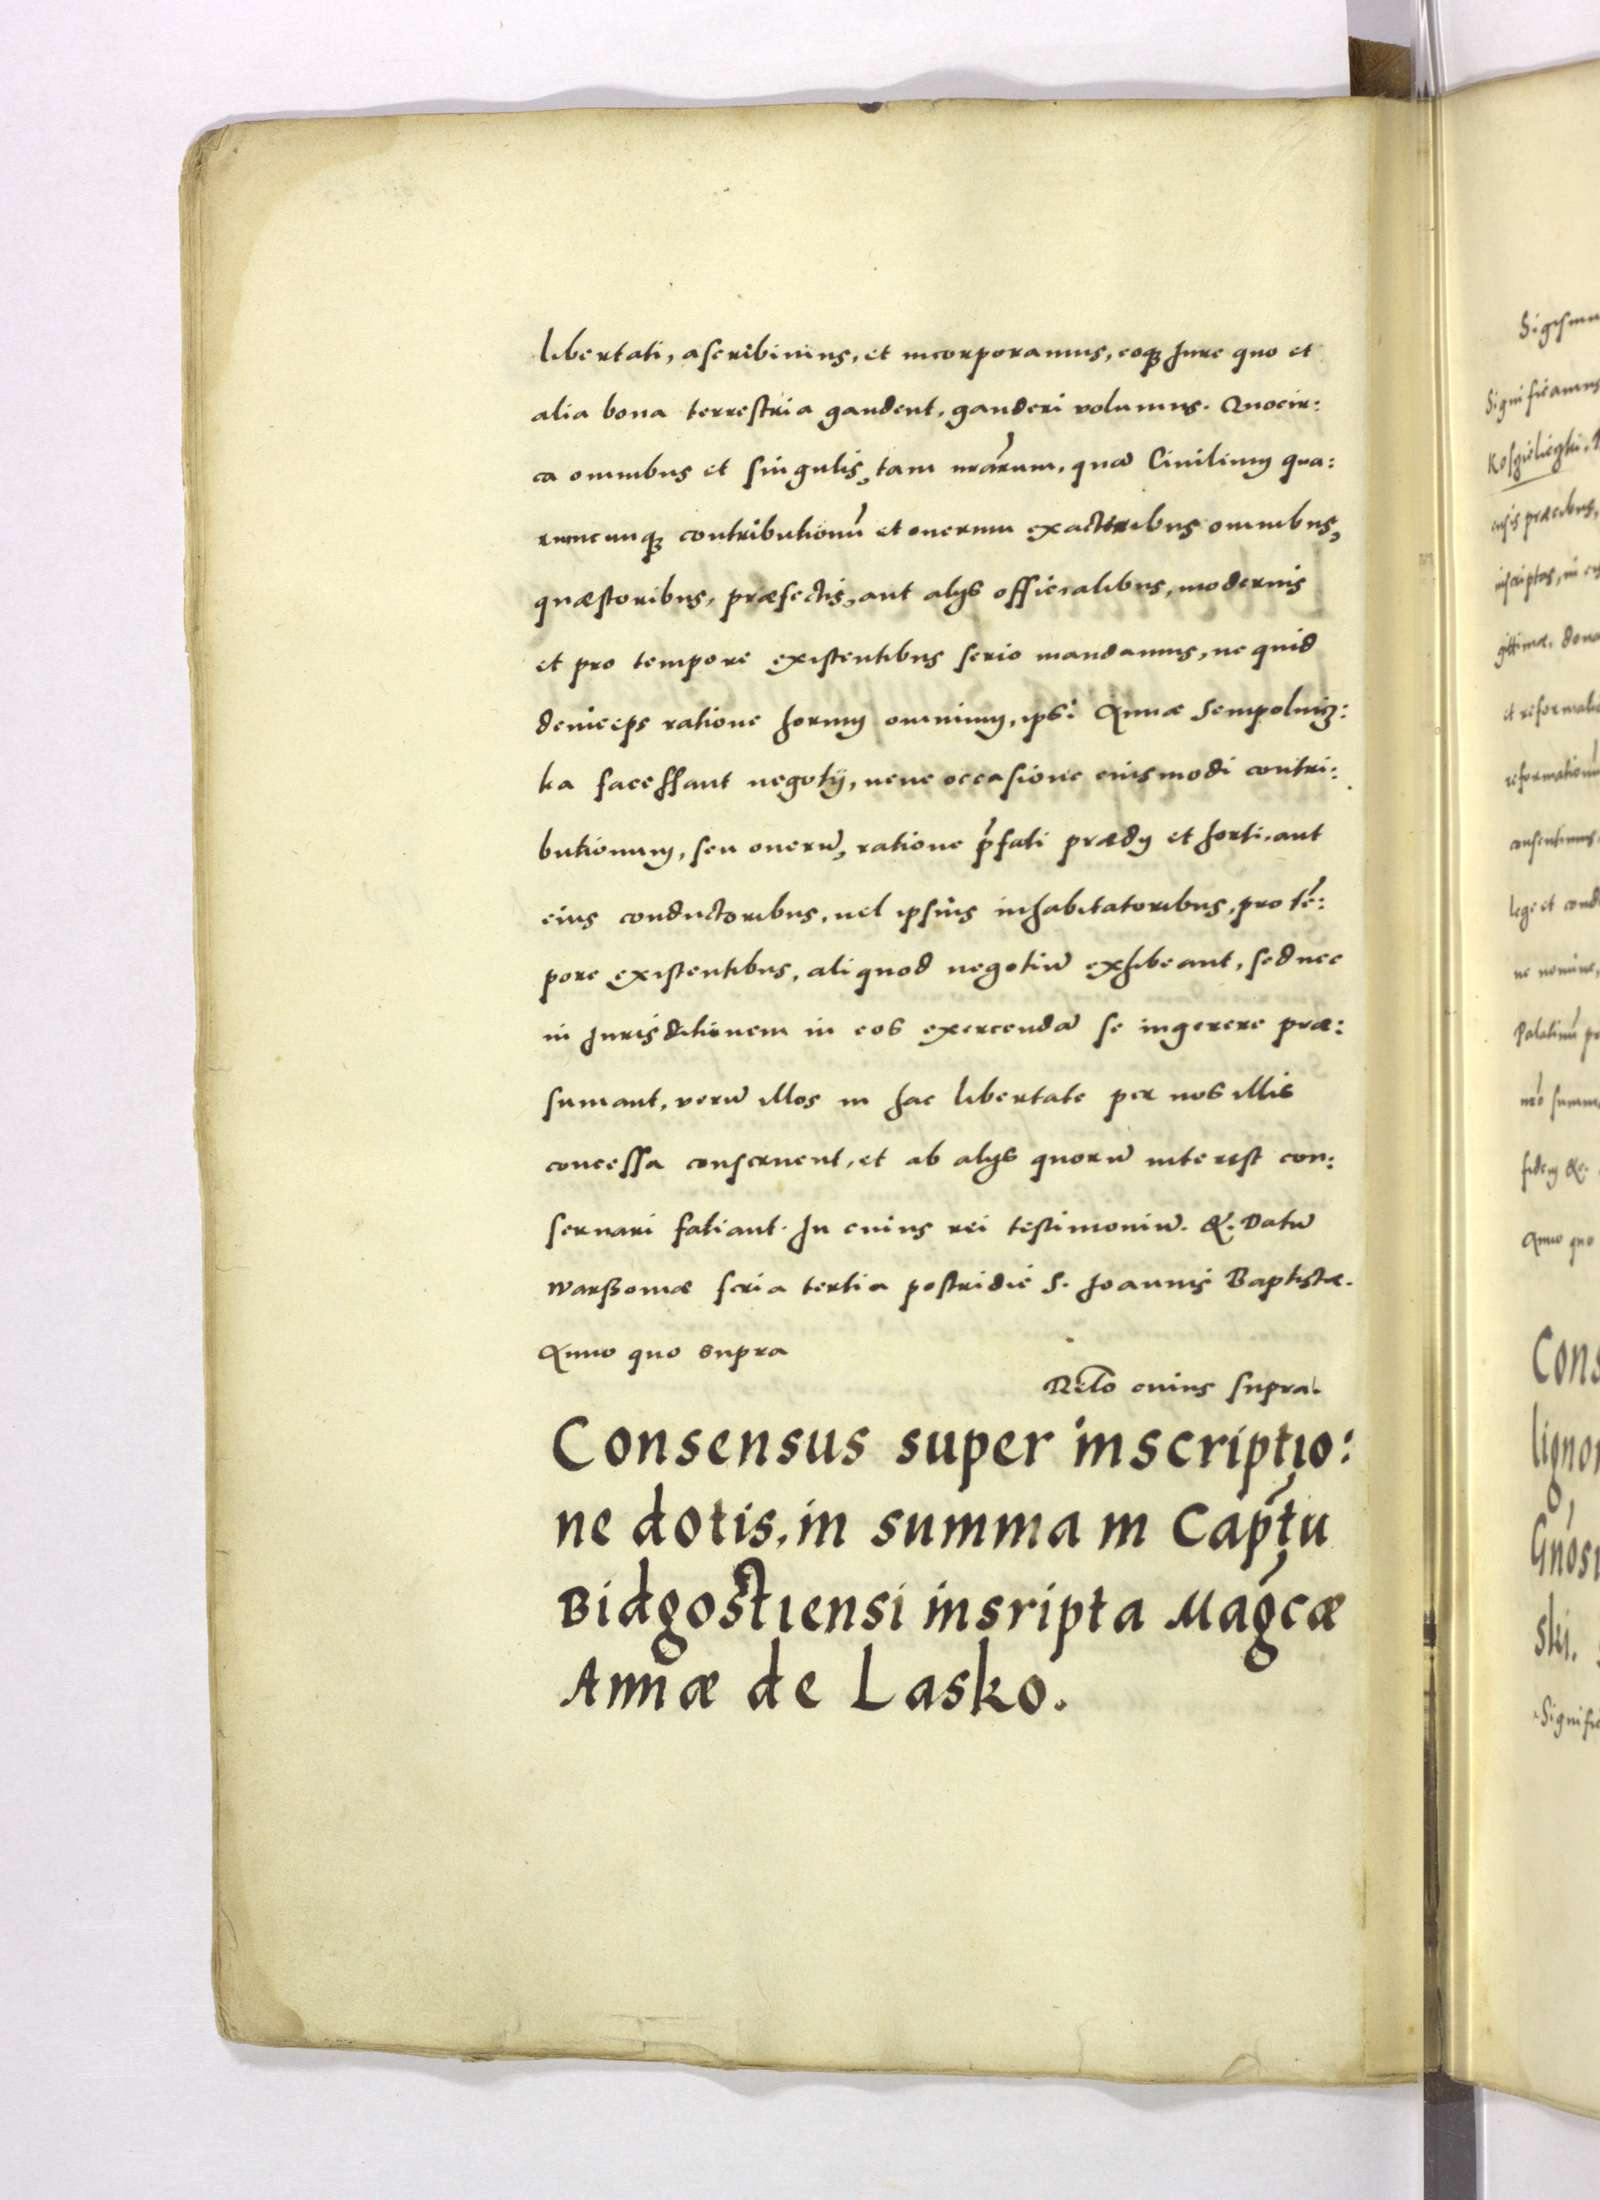 libertati, ascribimus, et incorporamus, eoq₃ Jure quo et
alia bona terrestria gaudent, gauderi volumus. Quocir:
ca omnibus et singulis, tam nrārum, quā Ciuilium qua:
rumcunq₃ contributionū et onerum exactoribus omnibus,
quæstoribus, præfectis, aut alijs officialibus, modernis
et pro tempore existentibus serio mandamus, ne quid
deinceps ratione horum omnium, ipsi Annæ Sempolinsz:
ka facessant negotij, neue occasione eiusmodi contri:
butionum, seu onerū, ratione p̄fati prædij et horti, aut
eius conductoribus, uel ipsius inhabitatoribus, pro tē:
pore existentibus, aliquod negotiū exhibeant, sed nec
in Jurisditionem in eos exercendā se ingerere præ:
sumant, verū illos in hac libertate per nos illis
concessa conseruent, et ab alijs quorū interest con:
seruari fatiant. In cuius rei testimoniū. &. Datū
Warssouiæ feria tertia postridie S. Joannis Baptistæ.
Anno quo supra
Relō cuius supra.
Consensus super inscriptio:
ne dotis, in summa in Captū
Bidgostiensi insripta Magcæ
Annæ de Lasko.
Sigismu
Significamus
Koszcielezki
ensis præcibus,
inscriptas, in
gittimæ, dona
et reformatio
reformationū
consentimus
lege et condi
ne nomine,
Palatinū
nrō summ
fidem &.
Anno quo
Cons
lignor
Gnosi
ski.
Signifi